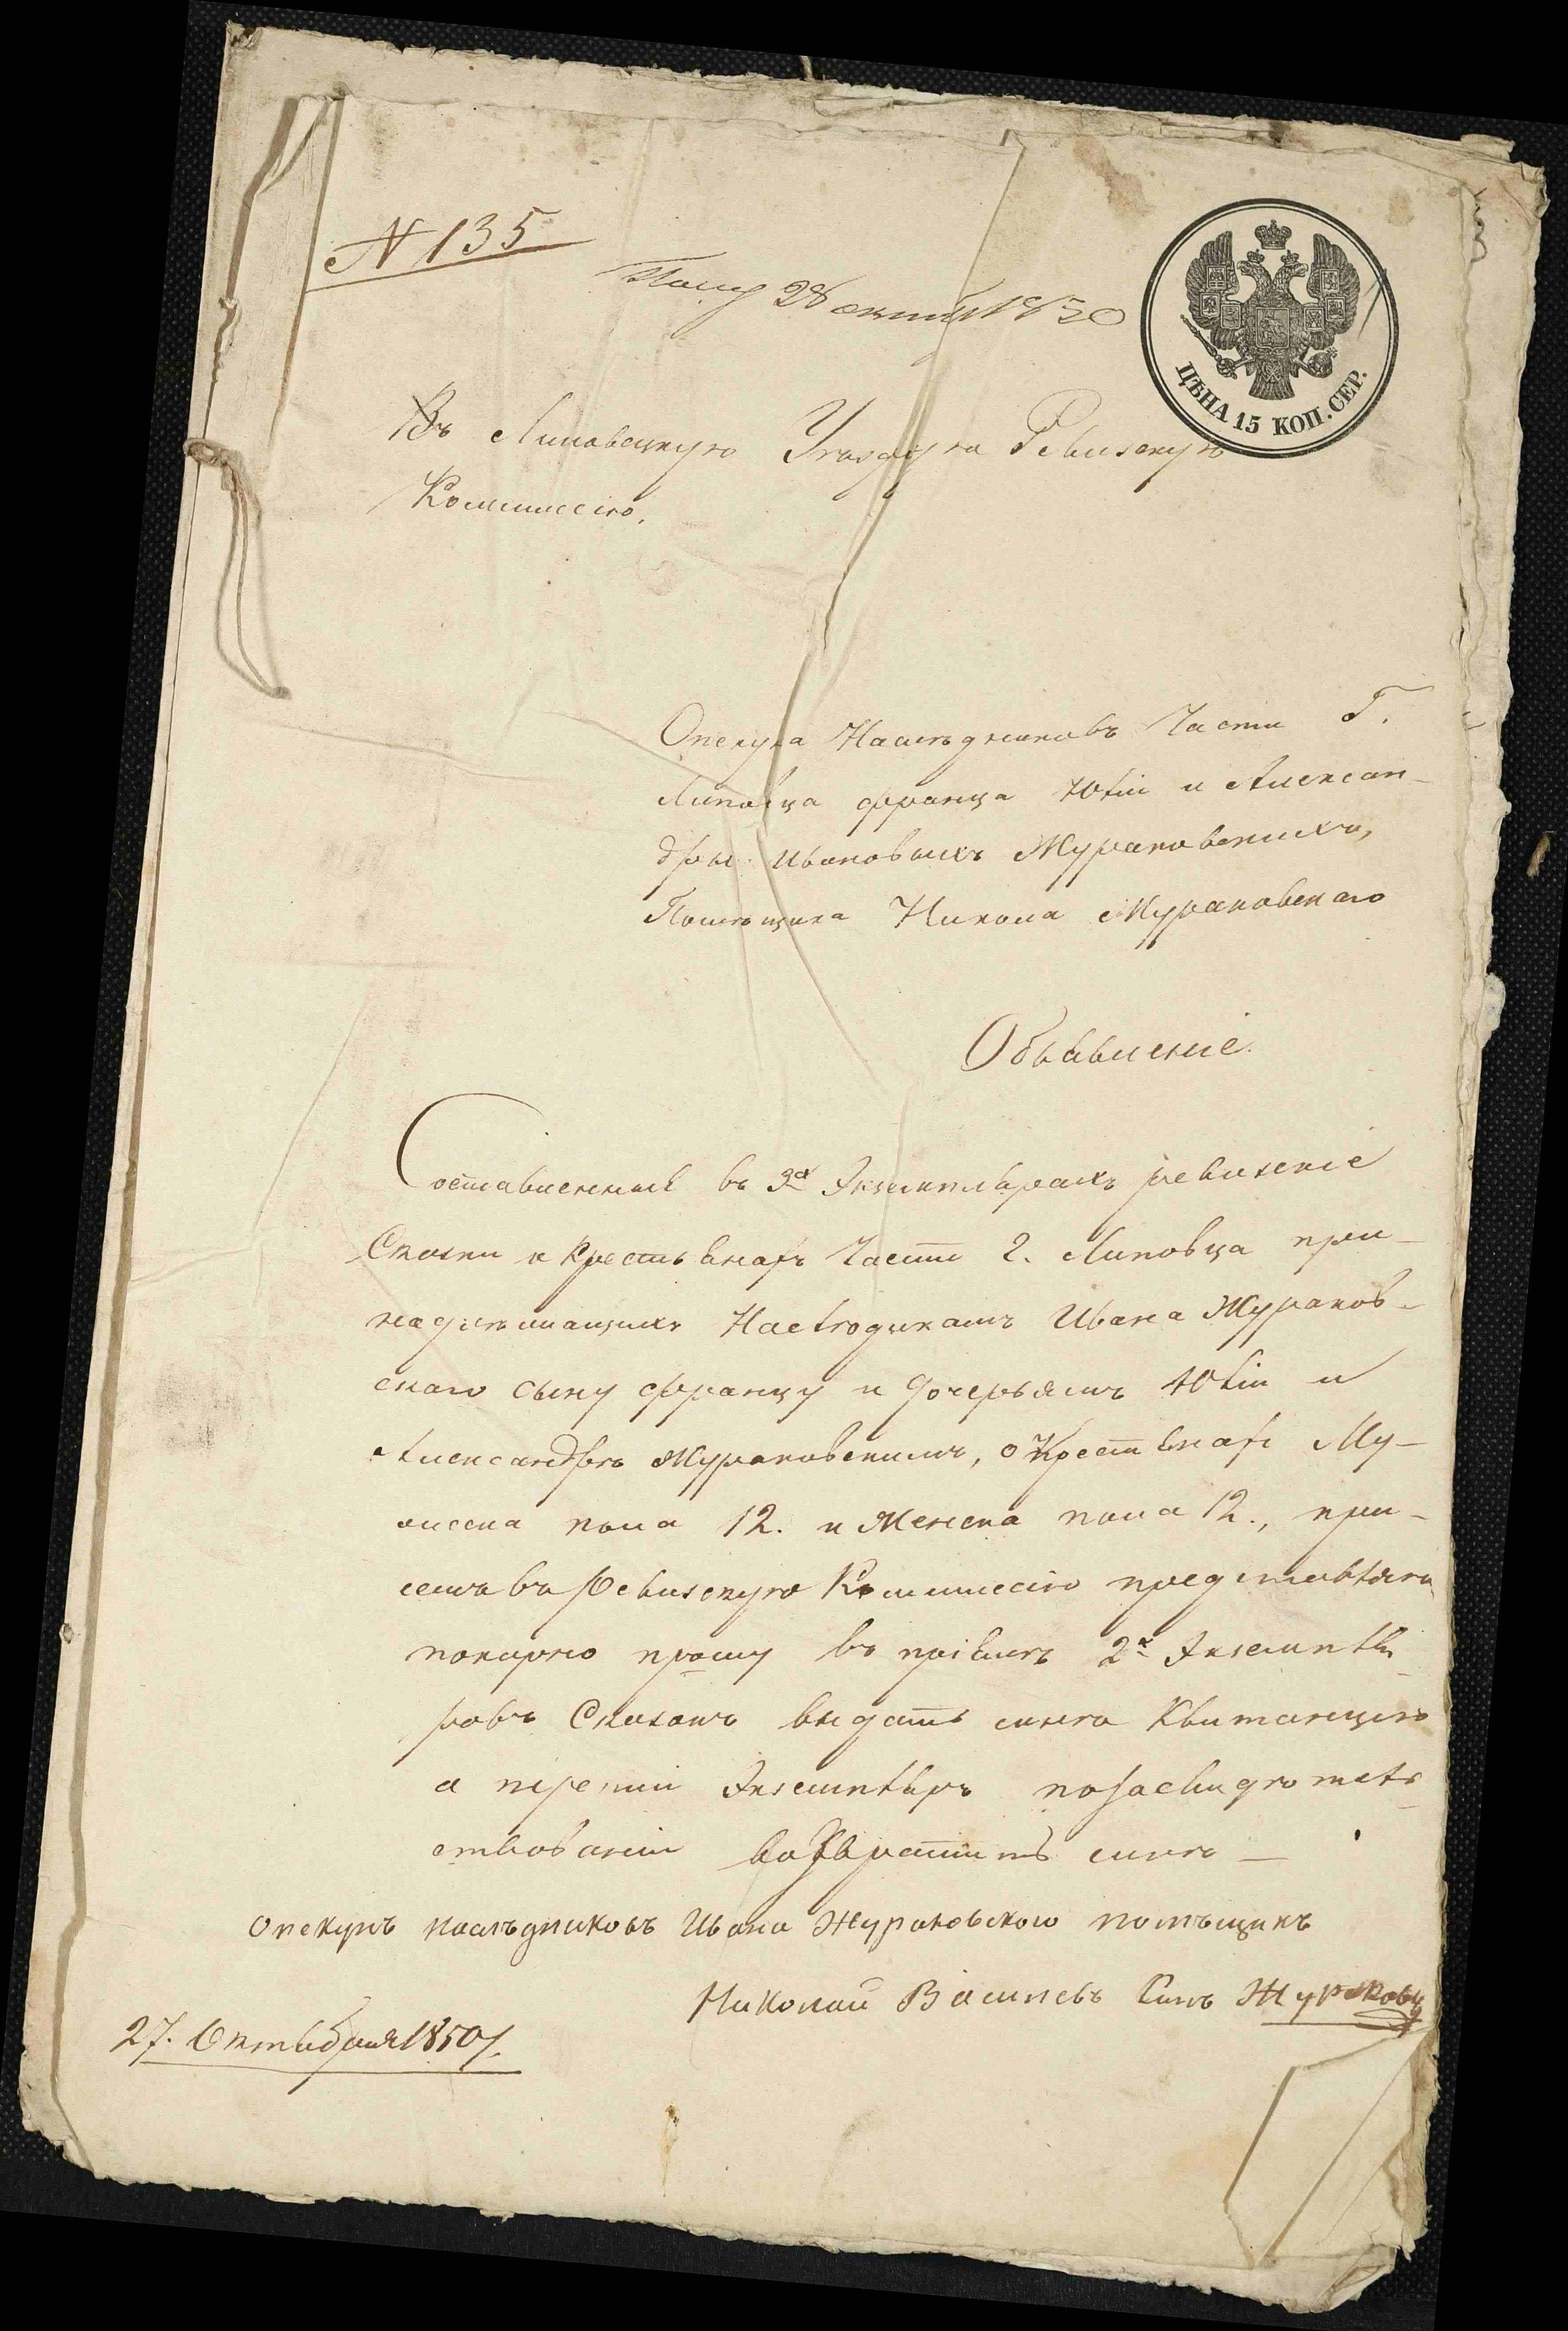 N 135
Полу 28 октяб 1850
ЦѢНА 15 КОП. СЕР.
Въ Липовецкую Уездную Ревизскую
Коммиссію,
Опекуна Наследниковъ Части Г.
Липовца Франца Юлiи и Алексан-
дры Ивановыхъ Жураковскихъ,
Помещика Никола Жураковскаго
Объявленіе.
Составленные въ 3х Экземплярахъ ревизскіе
Сказки о Крестьянахъ Части Г. Липовца при-
надлежащихъ Наследникамъ Ивана Жураков-
скаго сыну Францу и дочерьямъ Юлiи и
Александре Жураковскимъ, о Крестьянахъ Му-
жеска пола 12. и Женска пола 12., при
семъ въ Ревизскую Коммиссію представляя
покорно прошу въ пріеме 2х Экземпля-
ровъ Сказокъ выдать мне Квитанцію
а третій Экземпляръ по засвидетель-
ствованіи возвратить мне —
Опекунъ наслѣдниковъ Ивана Жураковского помѣщикъ
Николай Васильевъ Сынъ Жураковс
27. Октября 1850 г.